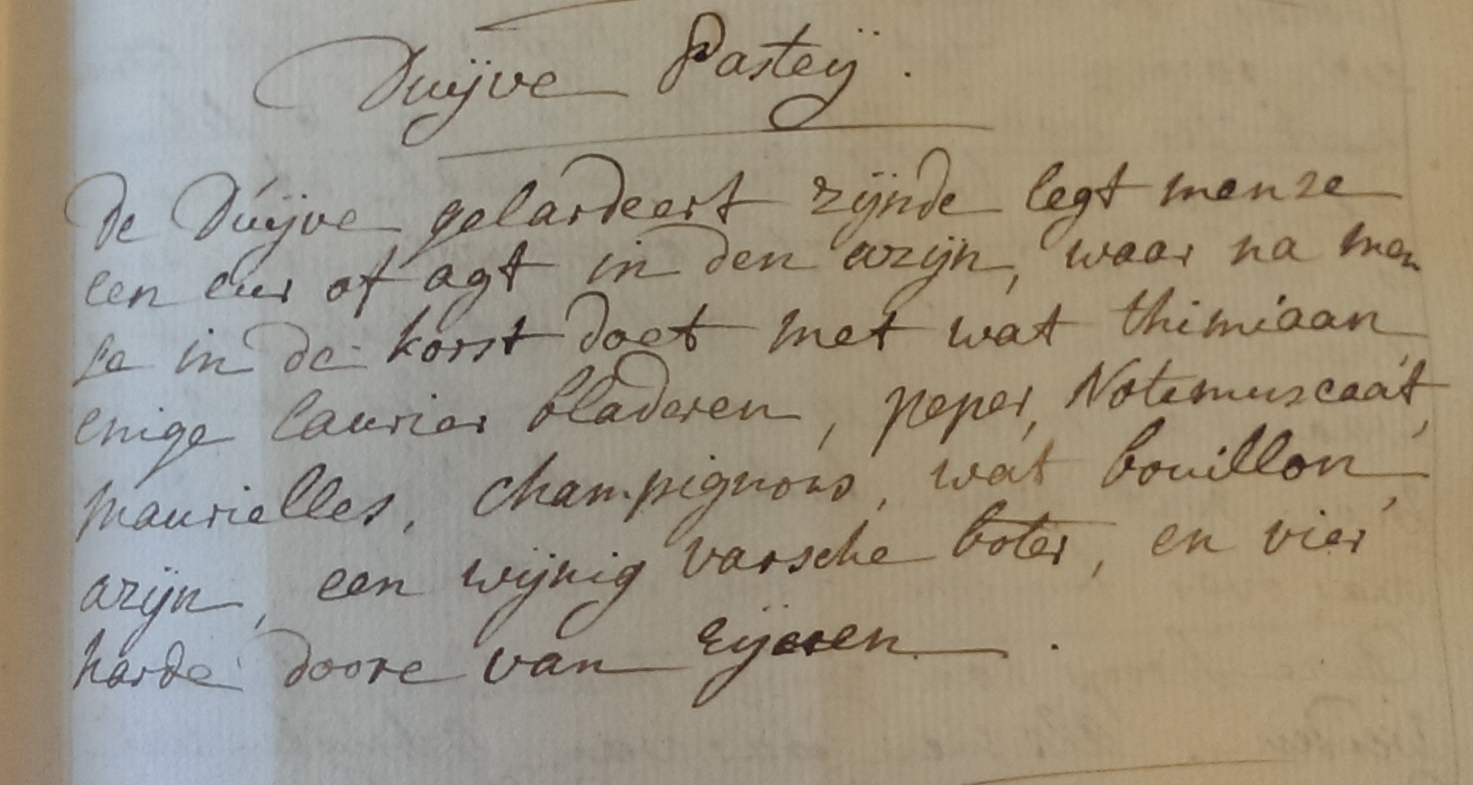 Duijve Pasteij.
De Duijve gelardeert zijnde legt men ze
een uur of agt in den azijn, waar na men
ze in de korst doet met wat thimiaan,
enige laurier bladeren, peper, Notemuscaat,
maurielles, champignons, wat bouillon,
azijn, een wijnig varsche boter, en vier
harde doore van Eijeren.